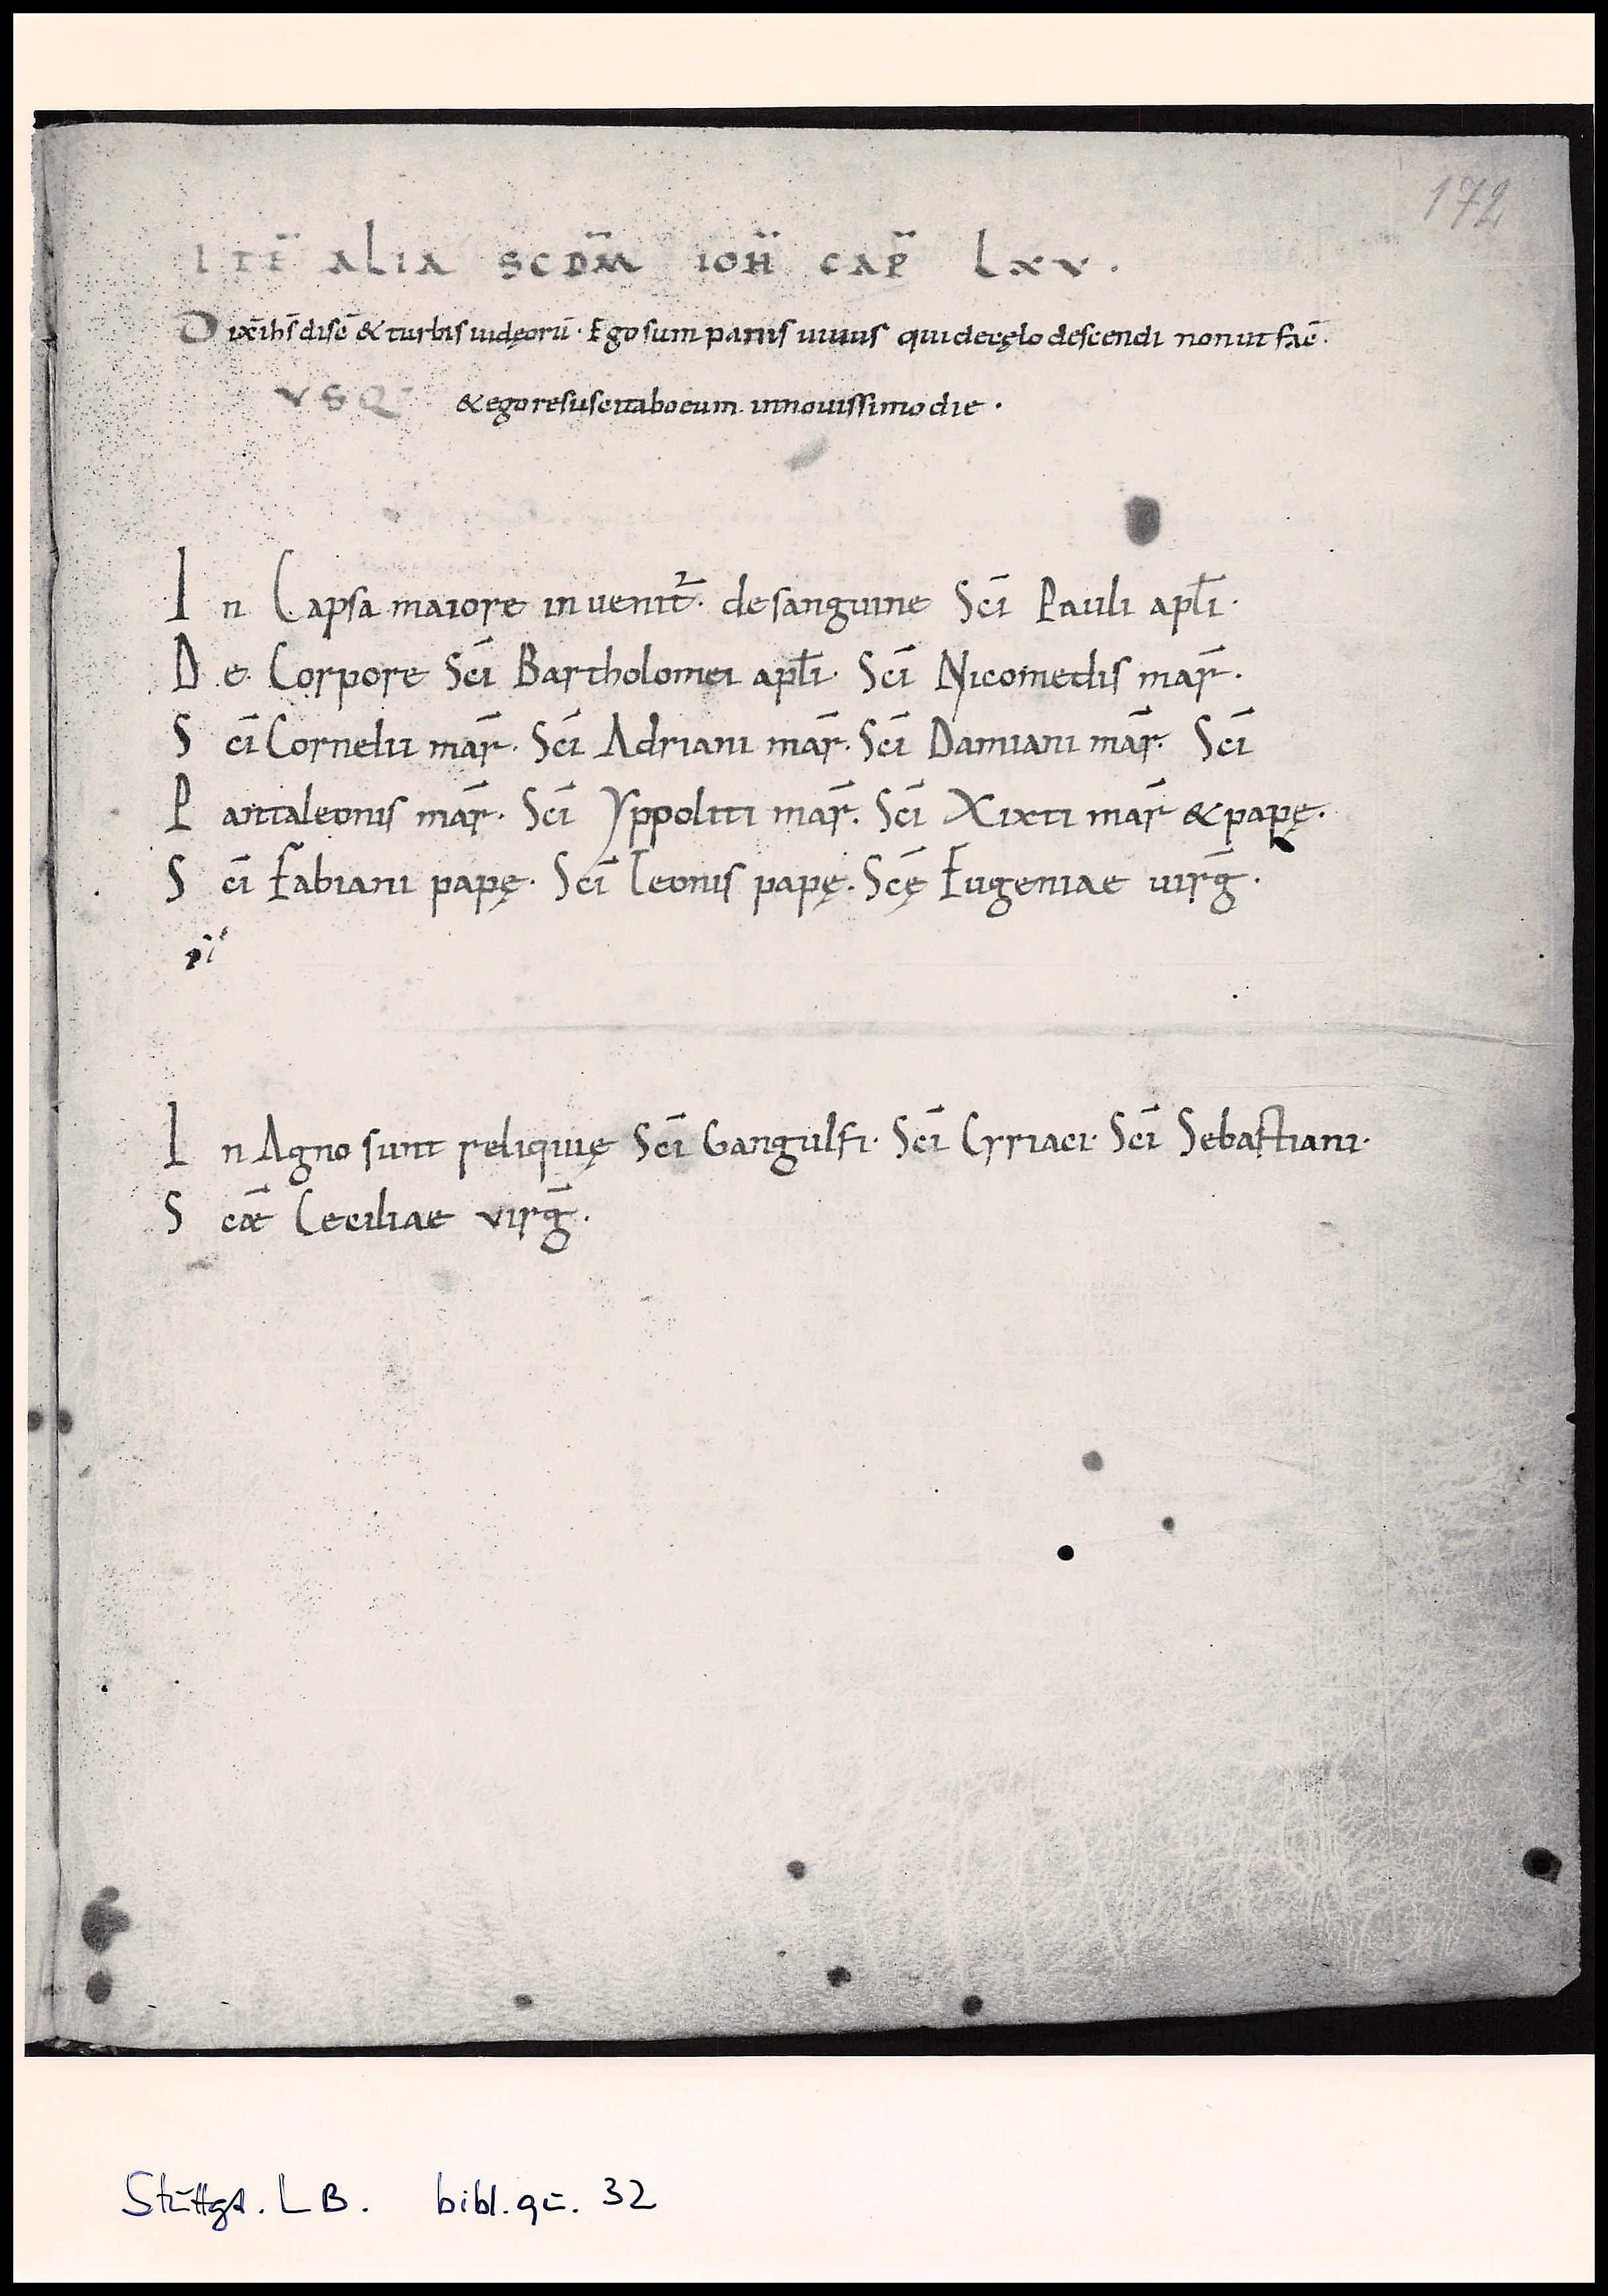 172
ITE᷃ ALIA SCDM̄ IOH̄ CAP̄ LXV.
Dix̄ ih̄s disc̄ & turbis iudęorū· Ego sum panis uiuus qui decęlo descendi non ut fac̄·
VSQ· & ego resuscitabo eum innouissimo die·
In Capsa maiore inuenit᷑· de sanguine Sc̄i Pauli apl̄i·
De Corpore Sc̄i Bartholomei apl̄i· Sc̄i Nicomedis mar̄·
Sc̄i Cornelii mar̄· Sc̄i Adriani mar̄· Sc̄i Damiani mar̄· Sc̄i
Pantaleonis mar̄· Sc̄i Yppoliti mar̄· Sc̄i Xixti mar̄ & papę·
Sc̄i Fabiani papę· Sc̄i Leonis papę· Sc̄ę Eugeniae uirḡ·
In Agno sunt reliquię Sc̄i Gangulfi· Sc̄i Cyriaci· Sc̄i Sebastiani·
Sc̄æ Ceciliae virḡ·
Stuttgt. LB. bibl. qū. 32